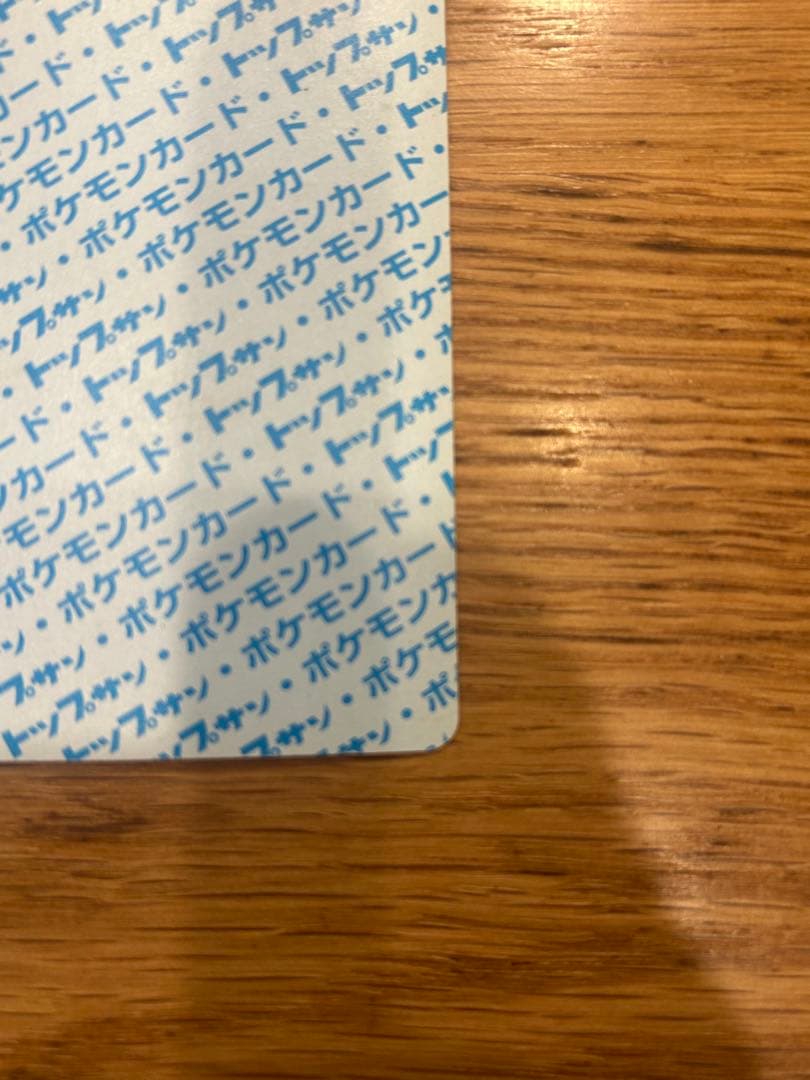 ド・トッ
カード・トップ
ンカード・トップサン
ケモンカード・トップサン・
・ポケモンカード・トップサン・
サン・ポケモンカード・トップサ
ップサン・ポケモンカード・トッ
・トップサン・ポケモンカード・
ード・トップサン・ポケモンカー
ンカード・トップサン・ポケモン
モンカード・トップサン・ポケモ
ポケモンカード・トップサン・ポ
ン・ポケモンカード・トップサ
プサン・ポケモンカード・トッ
トップサン・ポケモンカード・
トップサン・ポケモンカード
ップサン・ポケモンカ
プサン・ポケモ
サン・ポ